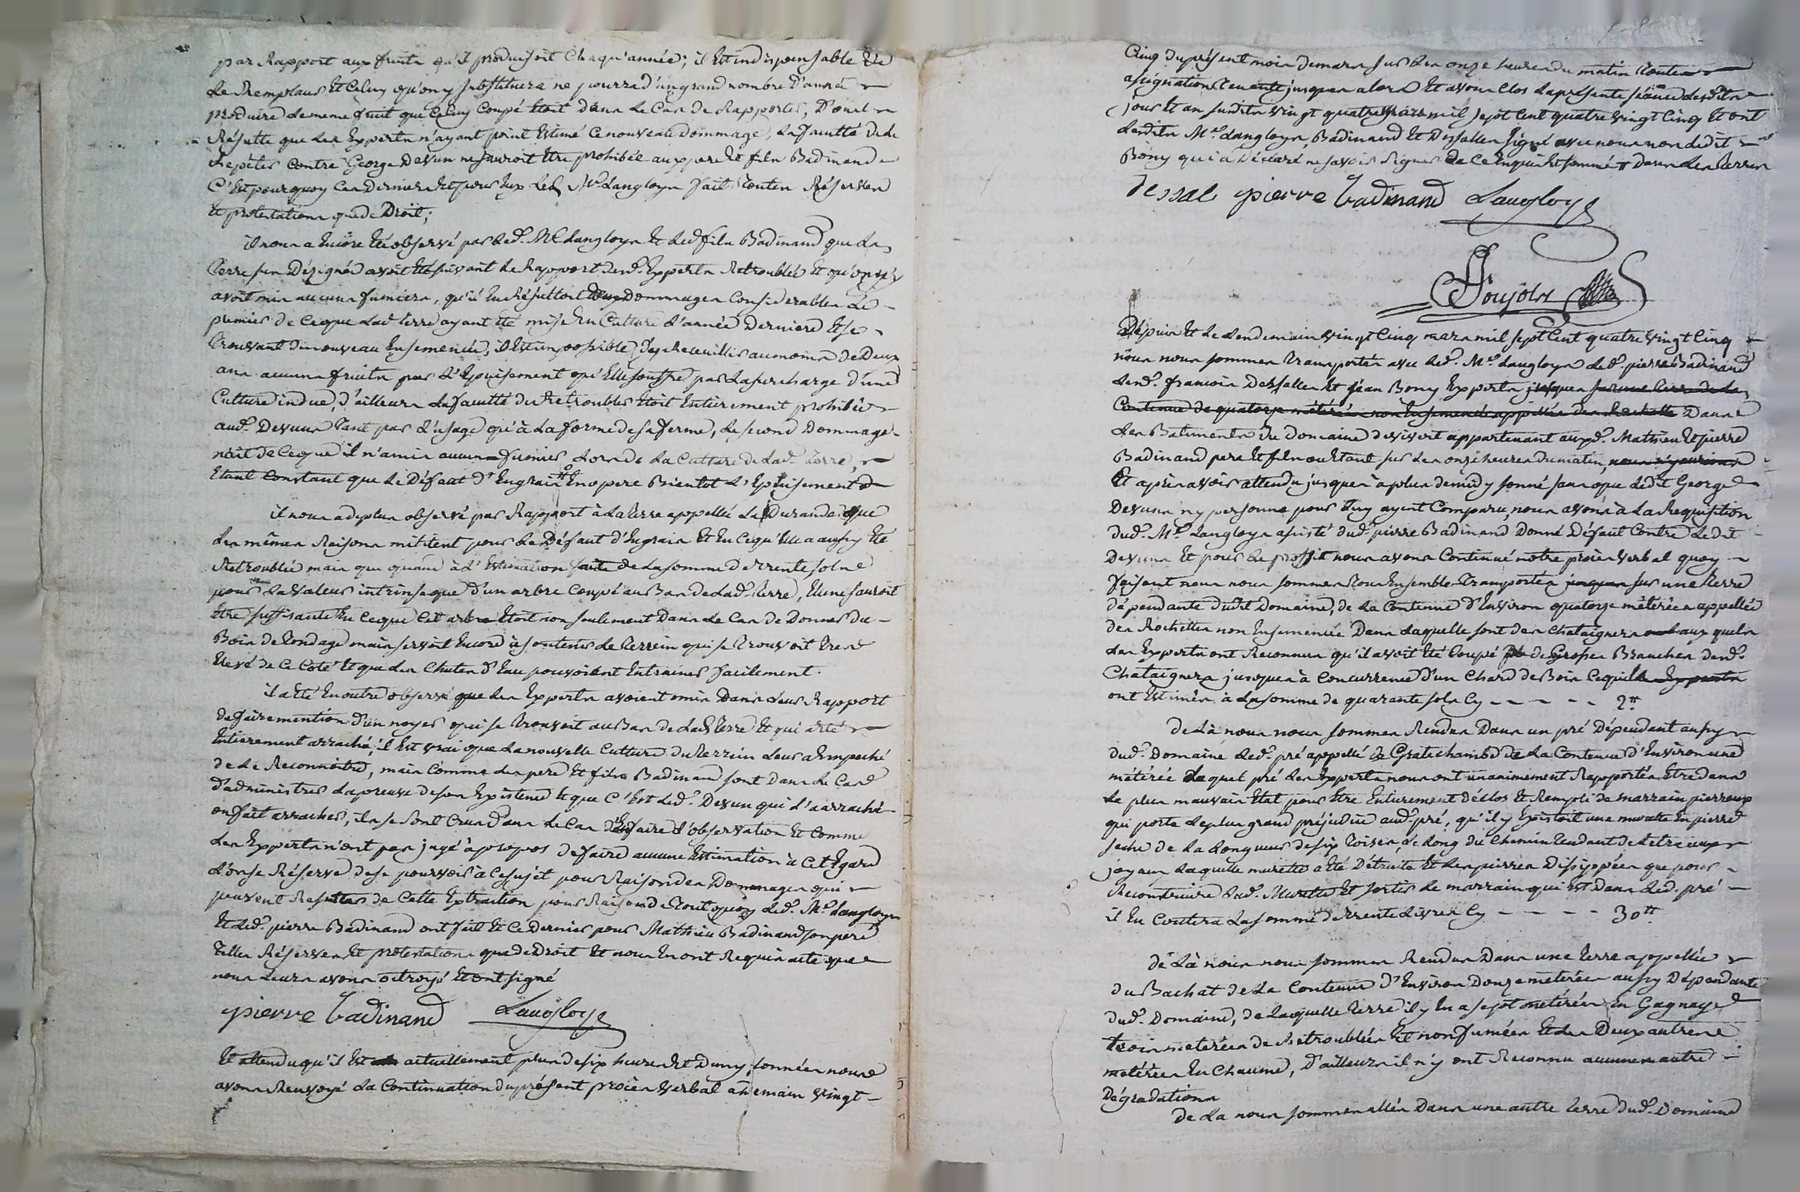 par Rapport aux fruits qu'il produisoit Chaqu'année; il Est indispensable de
Le Remplacer Et Celuy qu'on y substituera ne pourra d'un grand nombre d'année
produire Le meme fruit que Celuy Coupé Etoit dans Le Cas de Rapporter, D'ou il
Résulte que Les Experts n'ayant point Estimé Ce nouveau Dommage, La faculté de le
Repeter Contre George Devun ne sauroit Etre prohibée aux pere Et fils Badinand
C'Est pourquoy Ces Derniers Et pour Eux Led. Me Langloys fait toutes Réserves
Et protestations que de Droit;
il nous a Encore Eté observé par Led. Me Langloys Et Led. fils Badinand que La
Terre sus Désignée avoit Eté suivant Le Rapport desd. Experts Retroublée Et qu'on n'y
avoit mis aucuns fumiers, qu'il En Résultoit deux Dommages Considerables Le
premier de Ceque Lad. terre ayant Eté mise En Culture L'année Derniere Et se
trouvant De nouveau Ensemencée, il Est impossible d'y Recueillir au moins de Deux
ans aucuns fruits par L'Epuisement qu'Elle souffre par La surcharge d'une
Culture indue, d'ailleurs La faculté de Retroubler Etoit Entierement prohibée
aud. Devun tant par L'usage qu'à La forme de sa ferme, Le second Dommage
nait de Ceque il n'a mis aucuns fumiers Lors de La Culture de Lad. terre,
Etant Constant que Le Défaut D'Engrais En opere Bientot L'Epuisement
il nous a de plus observé par Rapport à La terre appellée La Durande que
Les mêmes Raisons militent pour Le Défaut d'Engrais Et En Ce qu'Elle a aussy Eté
Retroublée mais que quant à L'Estimation faite de La somme de trente sols
pour La Valeur intrinseque D'un arbre Coupé au Bas de Lad. terre, Elle ne sauroit
Etre suffisante En Ceque Cet arbre Etoit non seulement Dans Le Cas de Donner du
Bois de tondage mais servoit Encore à soutenir Le terrein qui se trouvoit tres
Elevé de Ce Coté Et que Les Chutes D'Eau pouvoient Entrainer facilement.
il a Eté En outre observé que Les Experts avoient omis Dans Leur Rapport
de faire mention D'un noyer qui se trouvoit au Bas de Lad. terre Et qui a Eté
Entierement arraché; il Est vrai que La nouvelle Culture du terrein Leur a Empeché
de Le Reconnoitre, mais Comme Les pere Et fils Badinand sont Dans Le Cas
d'administrer La preuve de son Existence Et que C'Est Led. Devun qui L'a arraché
ou fait arracher, ils se sont Crus Dans Le Cas d'En faire L'observation Et Comme
Les Experts n'ont pas jugé à propos de faire aucune Estimation à Cet Egard
L'on se Réserve de se pourvoir à Ce sujet pour Raison des Dommages qui
peuvent Resulter de Cette Extraction pour Raison de tout quoy Led. Me Langloys
Et Led. pierre Badinand ont fait Et Ce dernier pour Mathieu Badinand son pere
telles Réserves Et protestations que de Droit Et nous En ont Requis acte que
nous Leurs avons octroyé Et ont signé
pierre badinand Langloys
Et attendu qu'il Est actuellement plus de six heures Et Demy sonnées nous
avons Renvoyé La Continuation du présent procès Verbal à Demain Vingt
Cinq du présent mois de mars sur Les onze heures du matin toutes
assignations tenantes jusques alors Et avons Clos La présente séance Lesdits
jour Et an susdits Vingt quatre mars mil sept Cent quatre Vingt Cinq Et ont
Lesdits Me Langloys, Badinand Et Dessalles signé avec nous non Ledit
Bony qui a Déclaré ne savoir signer de Ce Enquis Et sommé Dans Les terres
dessal pierre badinand Langloys
Soujolz
Dépuis Et Le Lendemain Vingt Cinq mars mil sept Cent quatre Vingt Cinq
nous nous sommes transportés avec Led. Me Langloys Led. pierre Badinand
Lesd. francois Dessalles Et jean Bony Experts jusques sur une terre de La
Contenue de quatorze métérées non Ensemencée appellée des Rochette Dans
Les Batiments du Domaine devisoit appartenant auxd. Mathieu Et pierre
Badinand pere Et fils ou Etant sur Les onze heures du matin,
Et après avoir attendu jusques à plus de midy sonné sans que Ledit George
Devun ny personne pour Luy ayent Comparu, nous avons à La Requisition
dud. Me Langloys assisté dud. pierre Badinand Donné Défaut Contre Ledit
Devun Et pour Le proffit nous avons Continué notre procès Verbal quoy
faisant nous nous sommes tous Ensemble transportés jusques sur une terre
dépendante dudit Domaine, de La Contenue D'Environ quatorze métérées appellée
des Rochettes non Ensemencée Dans Laquelle sont des Chataigners auxquels
Les Experts ont Reconnu qu'il avoit Eté Coupé de Grosses Branches desd.
Chataigners jusques à Concurrence D'un Chard de Bois Cequi Les Experts
ont Estimés à La somme de quarante sols Cy - - - - - 2tt
de Là nous nous sommes Rendus Dans un pré Dépendant aussy
dud. Domaine Led. pré appellé de Gratechambe de La Contenue d'Environ une
métérée Lequel pré Les Experts nous ont unanimement Rapportés Etre dans
Le plus mauvais Etat pour Etre Entierement Déclos Et Rempli de marrain pierreux
qui porte Le plus grand préjudice aud. pré, qu'il y Existoit une murette En pierre
seche de La Longueur de six toises Le Long du Chemin tendant de Letra aux
joyaux Laquelle murette a Eté Détruite Et Les pierres Dissippées que pour
Reconstruire Lad. Murette Et sortir Le marrain qui Est Dans Led. pré
il En Coutera La somme de trente Livres Cy - - - - - 30tt
dé Là nous nous sommes Rendus Dans une terre appellée
du Bachat de La Contenue D'Environ Douze métérées aussy Dépendante
dud. Domaine, de Laquelle terre il y En a sept metérées En Gagnage
trois metérées de Retroublées Et non fumées Et Les Deux autres
metérées En Chaume, D'ailleurs il n'y ont Reconnu aucunes autres
Dégradations
de La nous sommes allés Dans une autre terre dud. Domaine